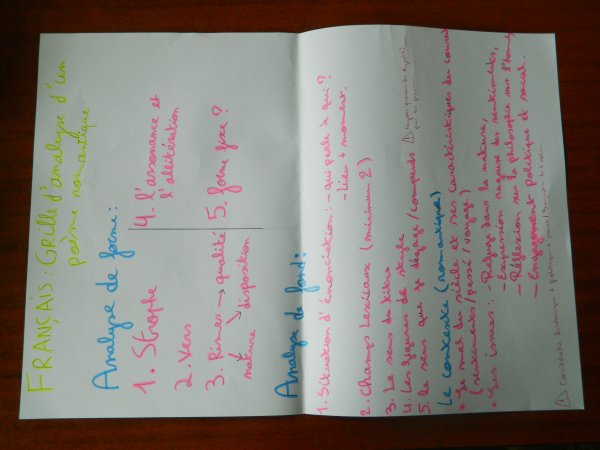 FRANÇAIS: GRille d'analyse d'un
poème romantique
Analyse de forme:
1. Strophe
2. Vers
3. Rimes → qualité
disposition
nature
4. l'assonance et
l'allitération
5. forme fixe?
Analyse de fond:
1. Situation d'énonciation: - qui parle à qui?
- Lieu + moment.
2. Champs Lexicaux (minimum 2)
3. Le sens du titre
4. Les figures de style
5. le sens qui se dégage / comprends
Le contexte (romantique)
• Le mal du siècle et ses caractéristiques du courant
(sentiments / passé / voyage)
• Les issues: - Refuge dans la nature,
- Expression rageuse des sentiments,
- Réflexion sur la philosophie sur l'homme,
- Engagement politique et social.
Contexte historique + politique +